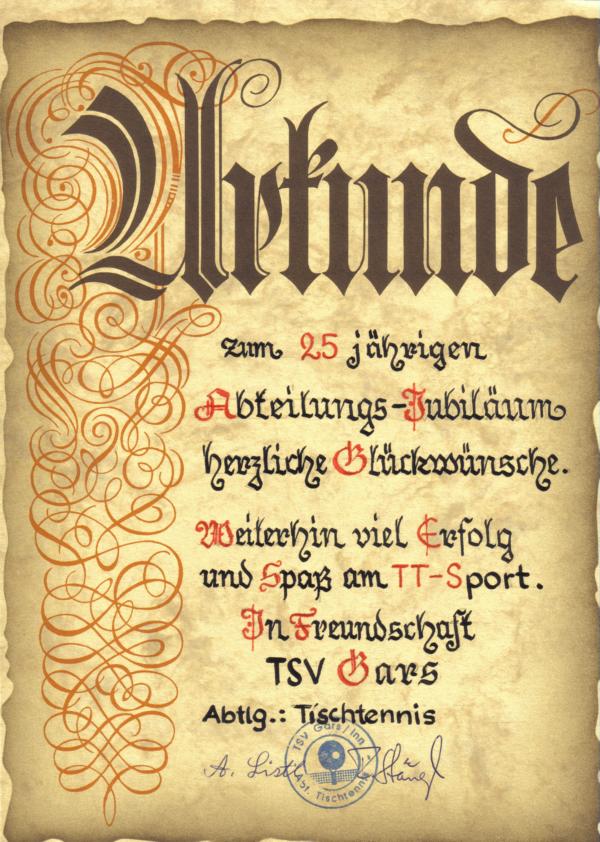 Urkunde
zum 25 jährigen
Abteilungs-Jubiläum
herzliche Glückwünsche.
Weiterhin viel Erfolg
und Spaß am TT-Sport.
In Freundschaft
TSV Gars
Abtlg.: Tischtennis
TSV Gars/Inn
Abt. Tischtennis
A.